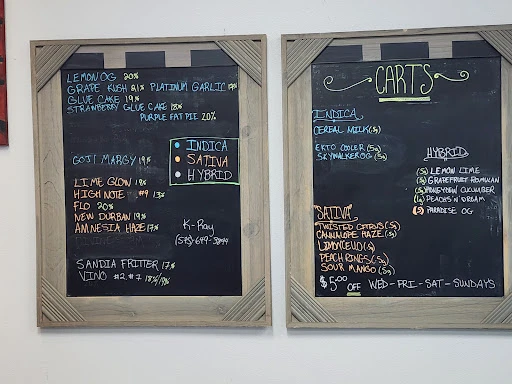 LEMON OG 20%
GRAPE KUSH 21% PLATINUM GARLIC 17%
GLUE CAKE 19%
STRAWBERRY GLUE CAKE 18%
PURPLE FAT PIE 20%
GOJI MARGY 19%
INDICA
SATIVA
HYBRID
LIME GLOW 18%
HIGH NOTE #9 13%
FLO 20%
NEW DURBAN 19%
AMNESIA HAZE 17%
K-Ray
(575)
SANDIA FRITTER 17%
VINO #2 #7 18%/19%
CARTS
INDICA
CEREAL MILK (.5g)
EKTO COOLER (.5g)
SKYWALKER OG (.5g)
HYBRID
(.5) LEMON LIME
(.5) GRAPEFRUIT ROMULAN
(.5) HONEYDEW CUCUMBER
PEACHS 'N' DREAM
(.5) PARADISE OG
"SATIVA"
TWISTED CITRUS (.5g)
CANNALOPE HAZE (.5g)
LIMONCELLO (.5g)
PEACH RINGS (.5g)
SOUR MANGO (.5g)
$5.00 OFF WED-FRI-SAT-SUNDAYS